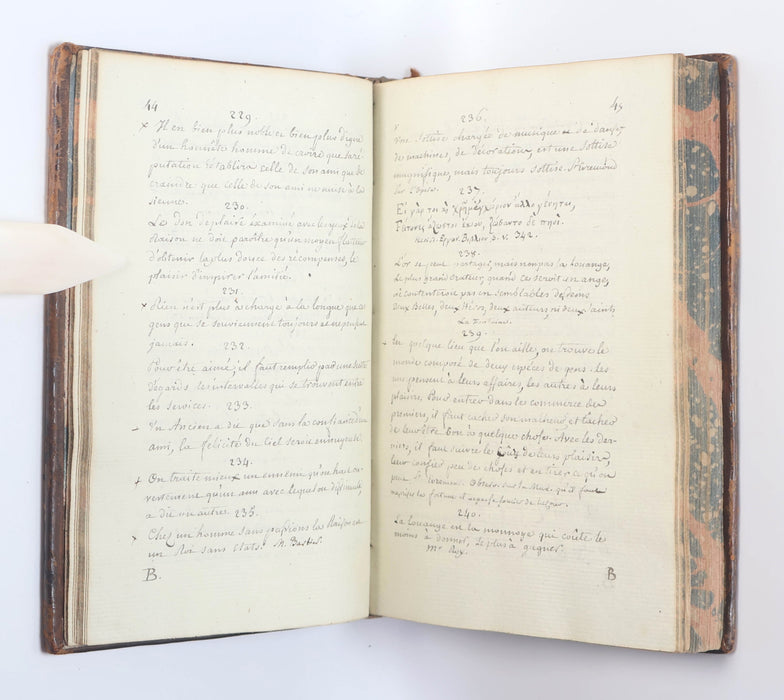 44
229.
x Il est bien plus noble et bien plus digne
d'un honnête homme de croire que sa ré-
putation établira celle de son ami que de
craindre que celle de son ami ne nuise à la
sienne.
230.
Le don de plaire examiné avec les yeux de la
Raison ne doit paroître qu'un moyen flatteur
d'obtenir la plus douce des récompenses, le
plaisir d'inspirer l'amitié.
231.
x Rien n'est plus à charge à la longue que les
gens qui se souviennent toujours et ne
jamais.
232.
Pour être aimé, il faut remplir par une suite
d'égards, les intervalles qui se trouvent entre
les services.
233.
Un Ancien a dit que sans la confiance d'un
ami, la félicité du Ciel seroit ennuyeuse.
234.
+ On traite mieux un ennemi qu'on hait ou-
vertement qu'un ami avec lequel on dissimule,
a dit un autre.
235.
Chez un homme sans passions la Raison est
un Roi sans etats.
B.
45
236.
Une sottise chargée de musique et de danse
de machines, de décoration, est une sottise
magnifique, mais toujours sottise. St. evremond
sur l'Opera.
237.
342.
238.
L'or se peut partager, mais non pas la louange,
Le plus grand orateur, quand ce seroit un ange,
ne contenteroit pas en semblables desseins
deux Belles, deux Héros, deux auteurs, ni deux saints
La Fontaine.
239.
En quelque lieu que l'on aille, on trouve le
monde composé de deux espèces de gens: les
uns pensent à leurs affaires, les autres à leurs
plaisirs. Pour entrer dans les commerce des
premiers, il faut cacher son malheur et tacher
de leur être bon à quelque chose. Avec les der-
niers, il faut suivre les de leurs plaisirs,
leur confier peu de choses et en tirer ce qu'on
peut. St. evremond. sur la qu'il faut
mepriser la fortune et
240.
La louange est la monnoye qui coûte le
moins à donner, le plus à gagner.
B